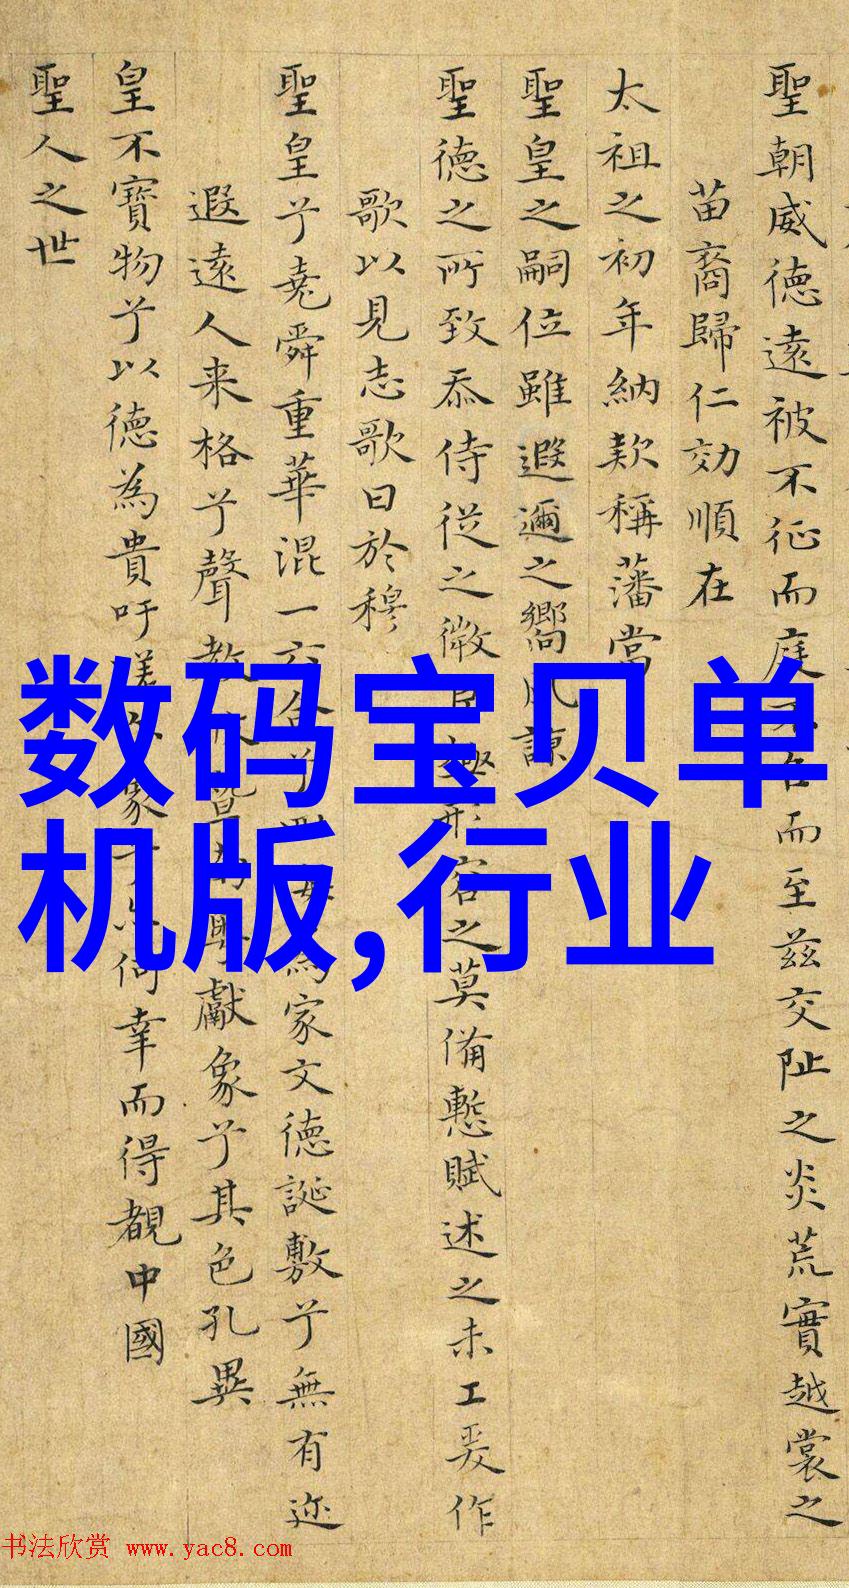 聖朝威德遠被不征而庭不召而至茲交阯之炎荒實越裳之
苗裔歸仁効順在
太祖之初年納款稱藩當
聖皇之嗣位雖遐邇之嚮風諒
聖德之所致忝侍從之微形容之莫備慙賦述之未工爰作
歌以見志歌曰於穆
聖皇兮堯舜重華混一六合兮為家文德誕敷兮無有迩
遐遠人来格兮聲教獻象兮其色孔異
皇不寶物兮以德為貴吁嗟象兮何幸而得覩中國
聖人之世
数码宝贝单
机版,行业
书法欣赏 www.yac8.com